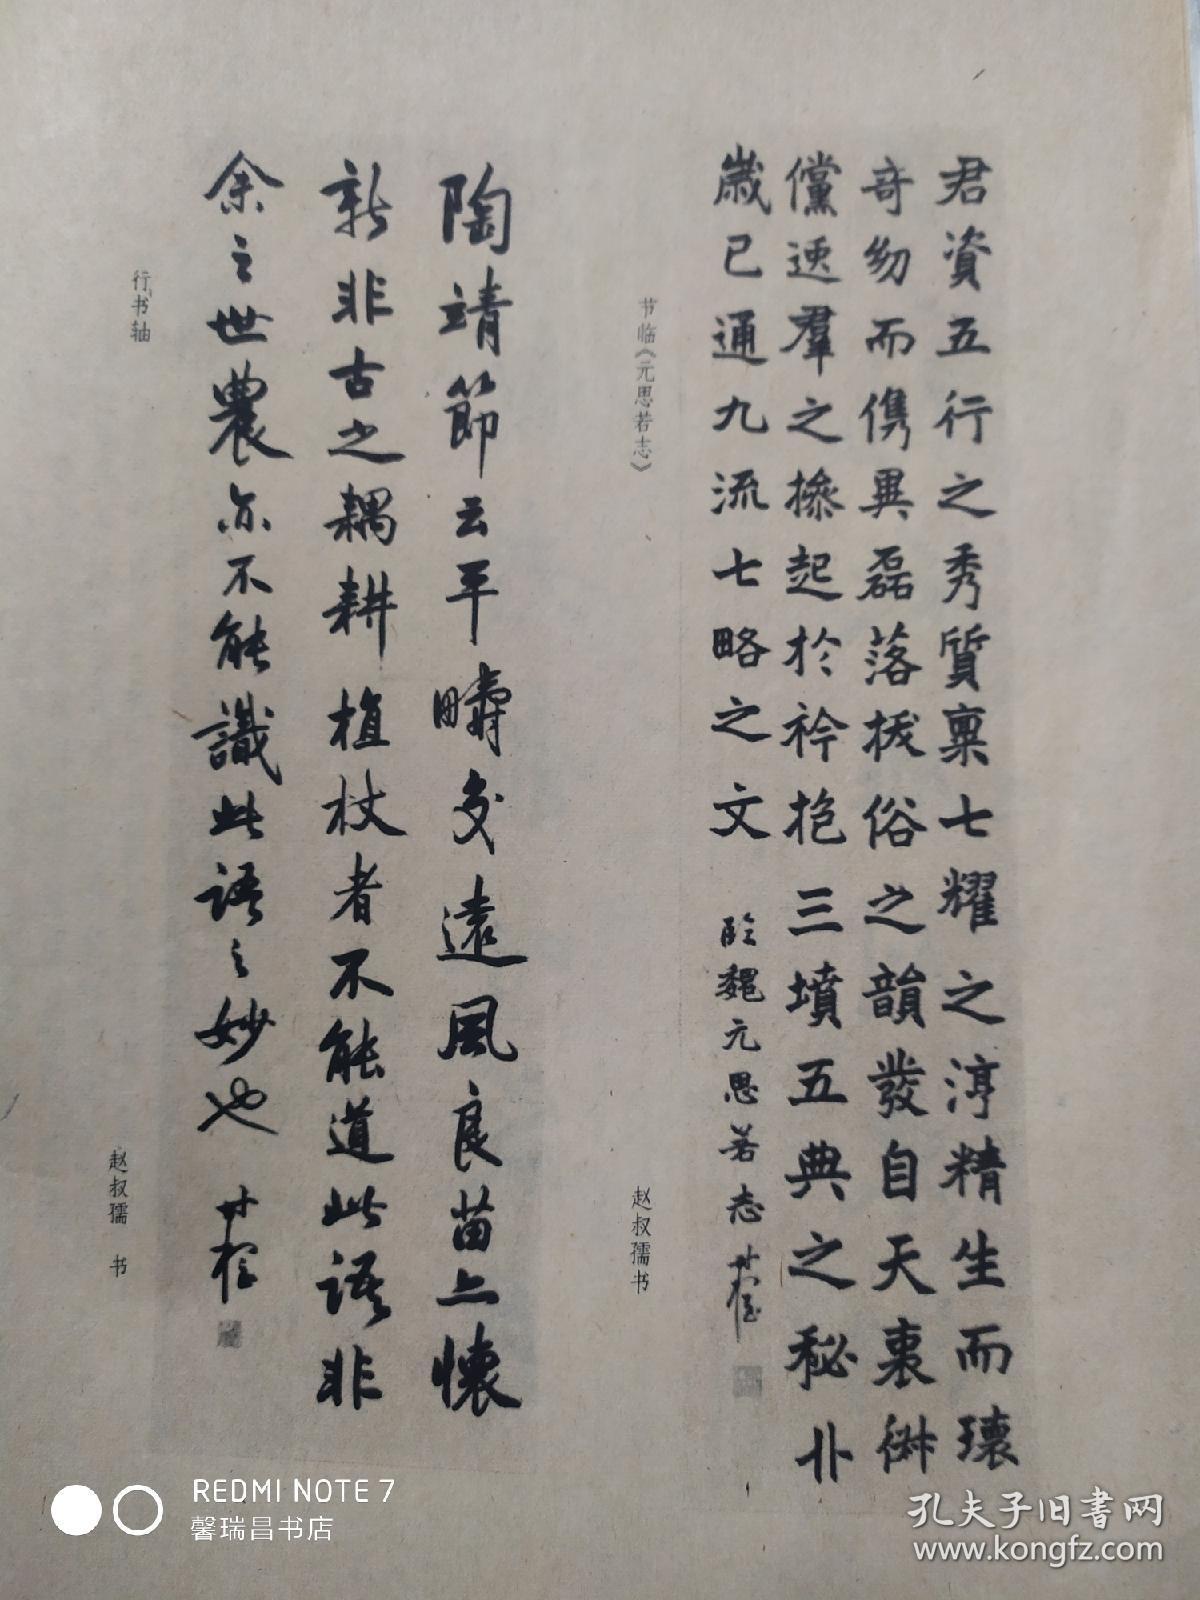 君資五行之秀質稟七耀之淳精生而瓌
奇幼而儁異磊落拔俗之韻發自天衷俶
儻逸羣之操起於衿抱三墳五典之秘卝
歲已通九流七略之文
臨魏元思若志
节临《元思若志》
赵叔孺书
陶靖節云平疇交遠風良苗亦懷
新非古之耦耕植杖者不能道此語非
余之世農亦不能識此語之妙也
行书轴
赵叔孺 书
REDMI NOTE 7
馨瑞昌书店
孔夫子旧书网
www.kongfz.com